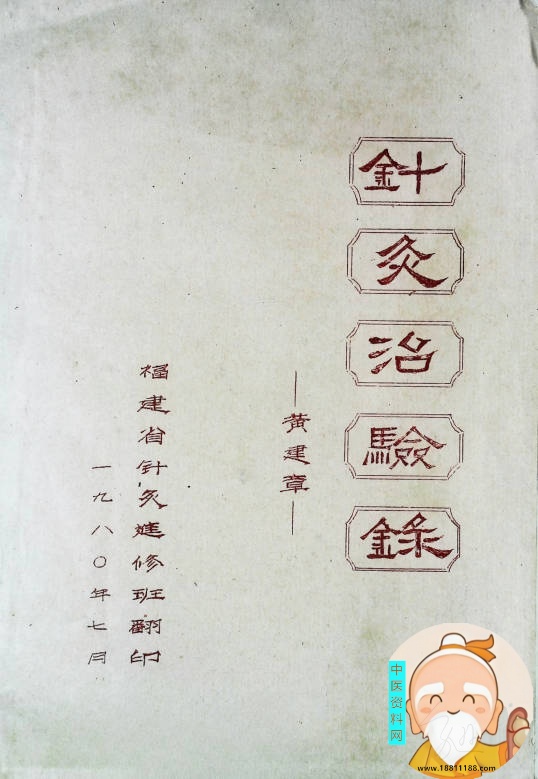 針灸治驗錄
—黃建章—
福建省針灸進修班翻印
一九八〇年七月
中医资料网
www.18811188.com